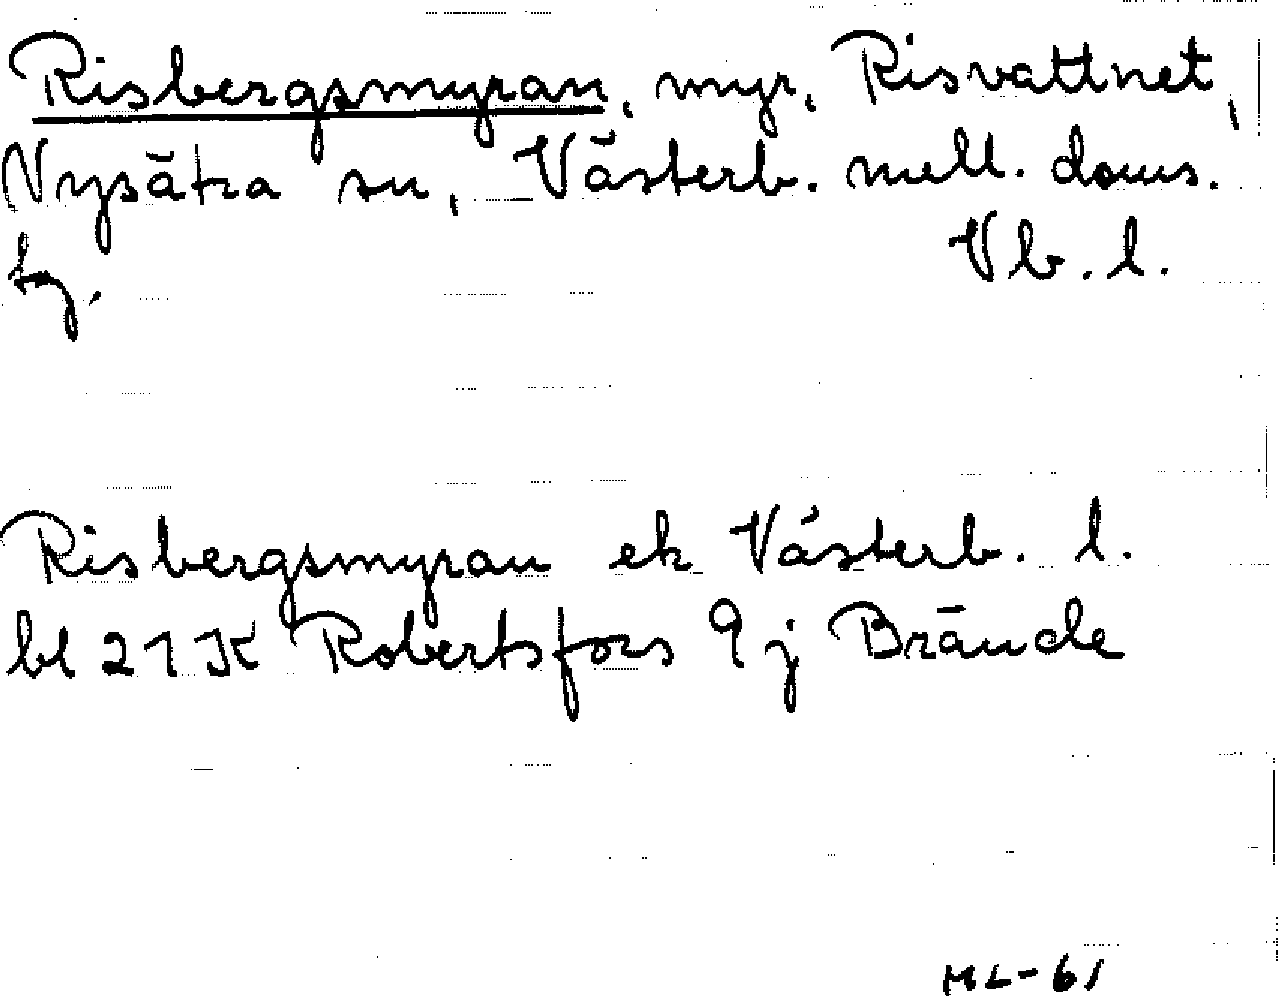 Risbergsmyran, myr, Risvattnet,
Nysätra sn, Västerb. mell. doms.
tg. Vb. l.
Risbergsmyran ek Västerb. l.
bl 21K Robertsfors 9j Brände
ML-61